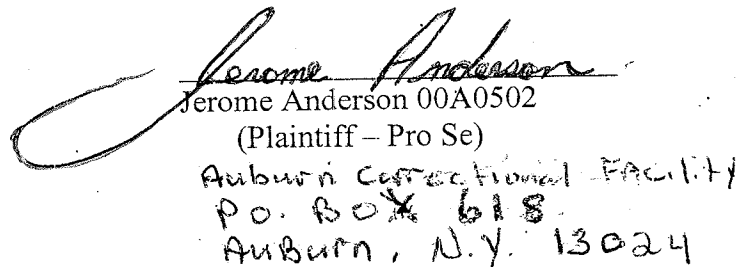 Jerome Anderson
Jerome Anderson 00A0502
(Plaintiff – Pro Se)
Auburn Correctional FAcility
P.O. BOX 618
AuBurn, N.Y. 13024